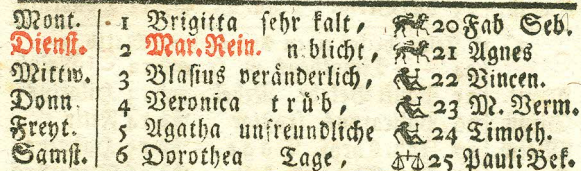 Mont. 1 Brigitta sehr kalt, 20 Fab Seb.
Dienst. 2 Mar. Rein. n blicht, 21 Agnes
Mittw. 3 Blasius veränderlich, 22 Vincen.
Donn 4 Veronica trüb, 23 M. Verm.
Freyt. 5 Agatha unfreundliche 24 Timoth.
Samst. 6 Dorothea Tage, 25 Pauli Bek.